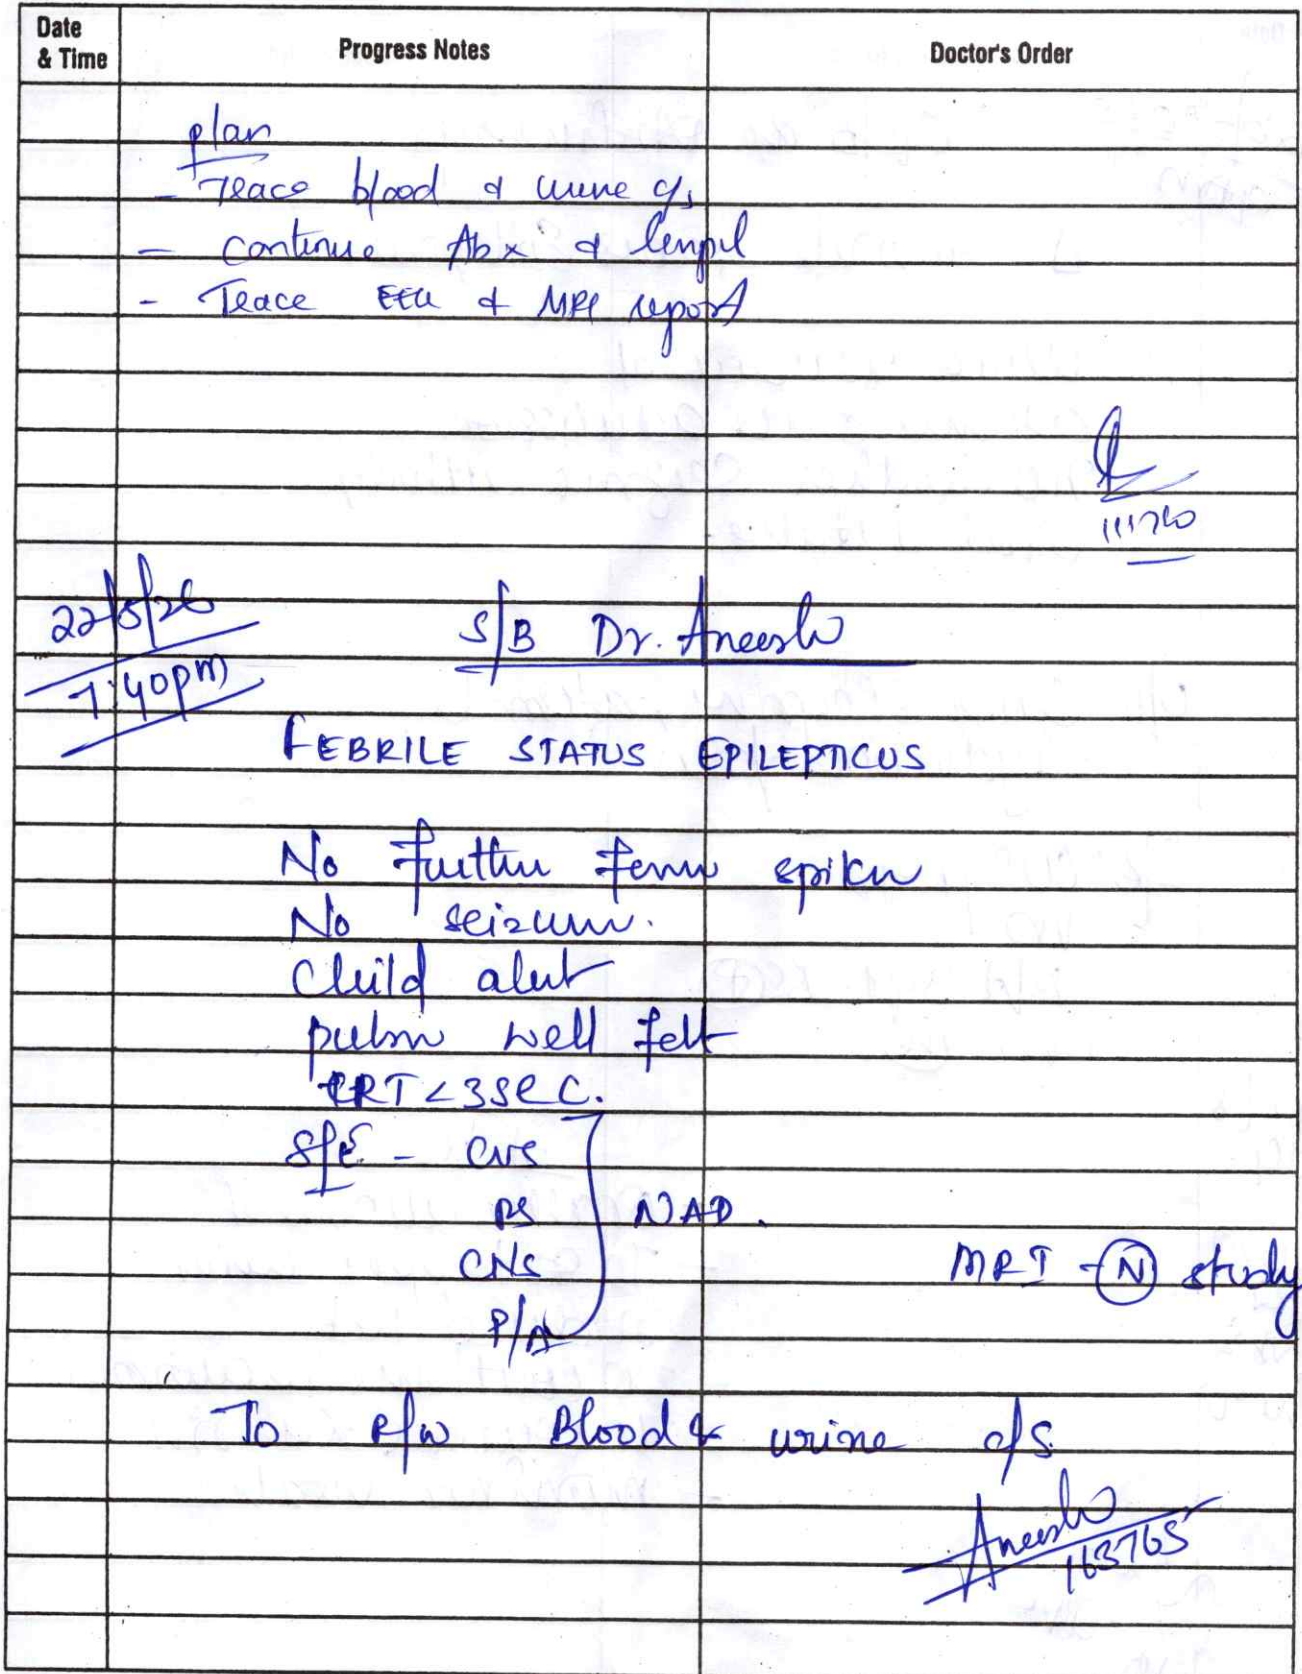 Date & Time Progress Notes Doctor's Order
plan
- Trace blood & urine c/s
- continue Abx & lenpil
- Trace EEG & MRI report
111760
22/5/26
7:40pm
S/B Dr. Aneesh
FEBRILE STATUS EPILEPTICUS
No further fever spikes
No seizures.
Child alert
pulses well felt
CRT < 3 sec.
S/E - CVS
RS NAD.
CNS
MRI - (N) study
P/A
To R/w Blood & urine c/s
Aneesh
163765